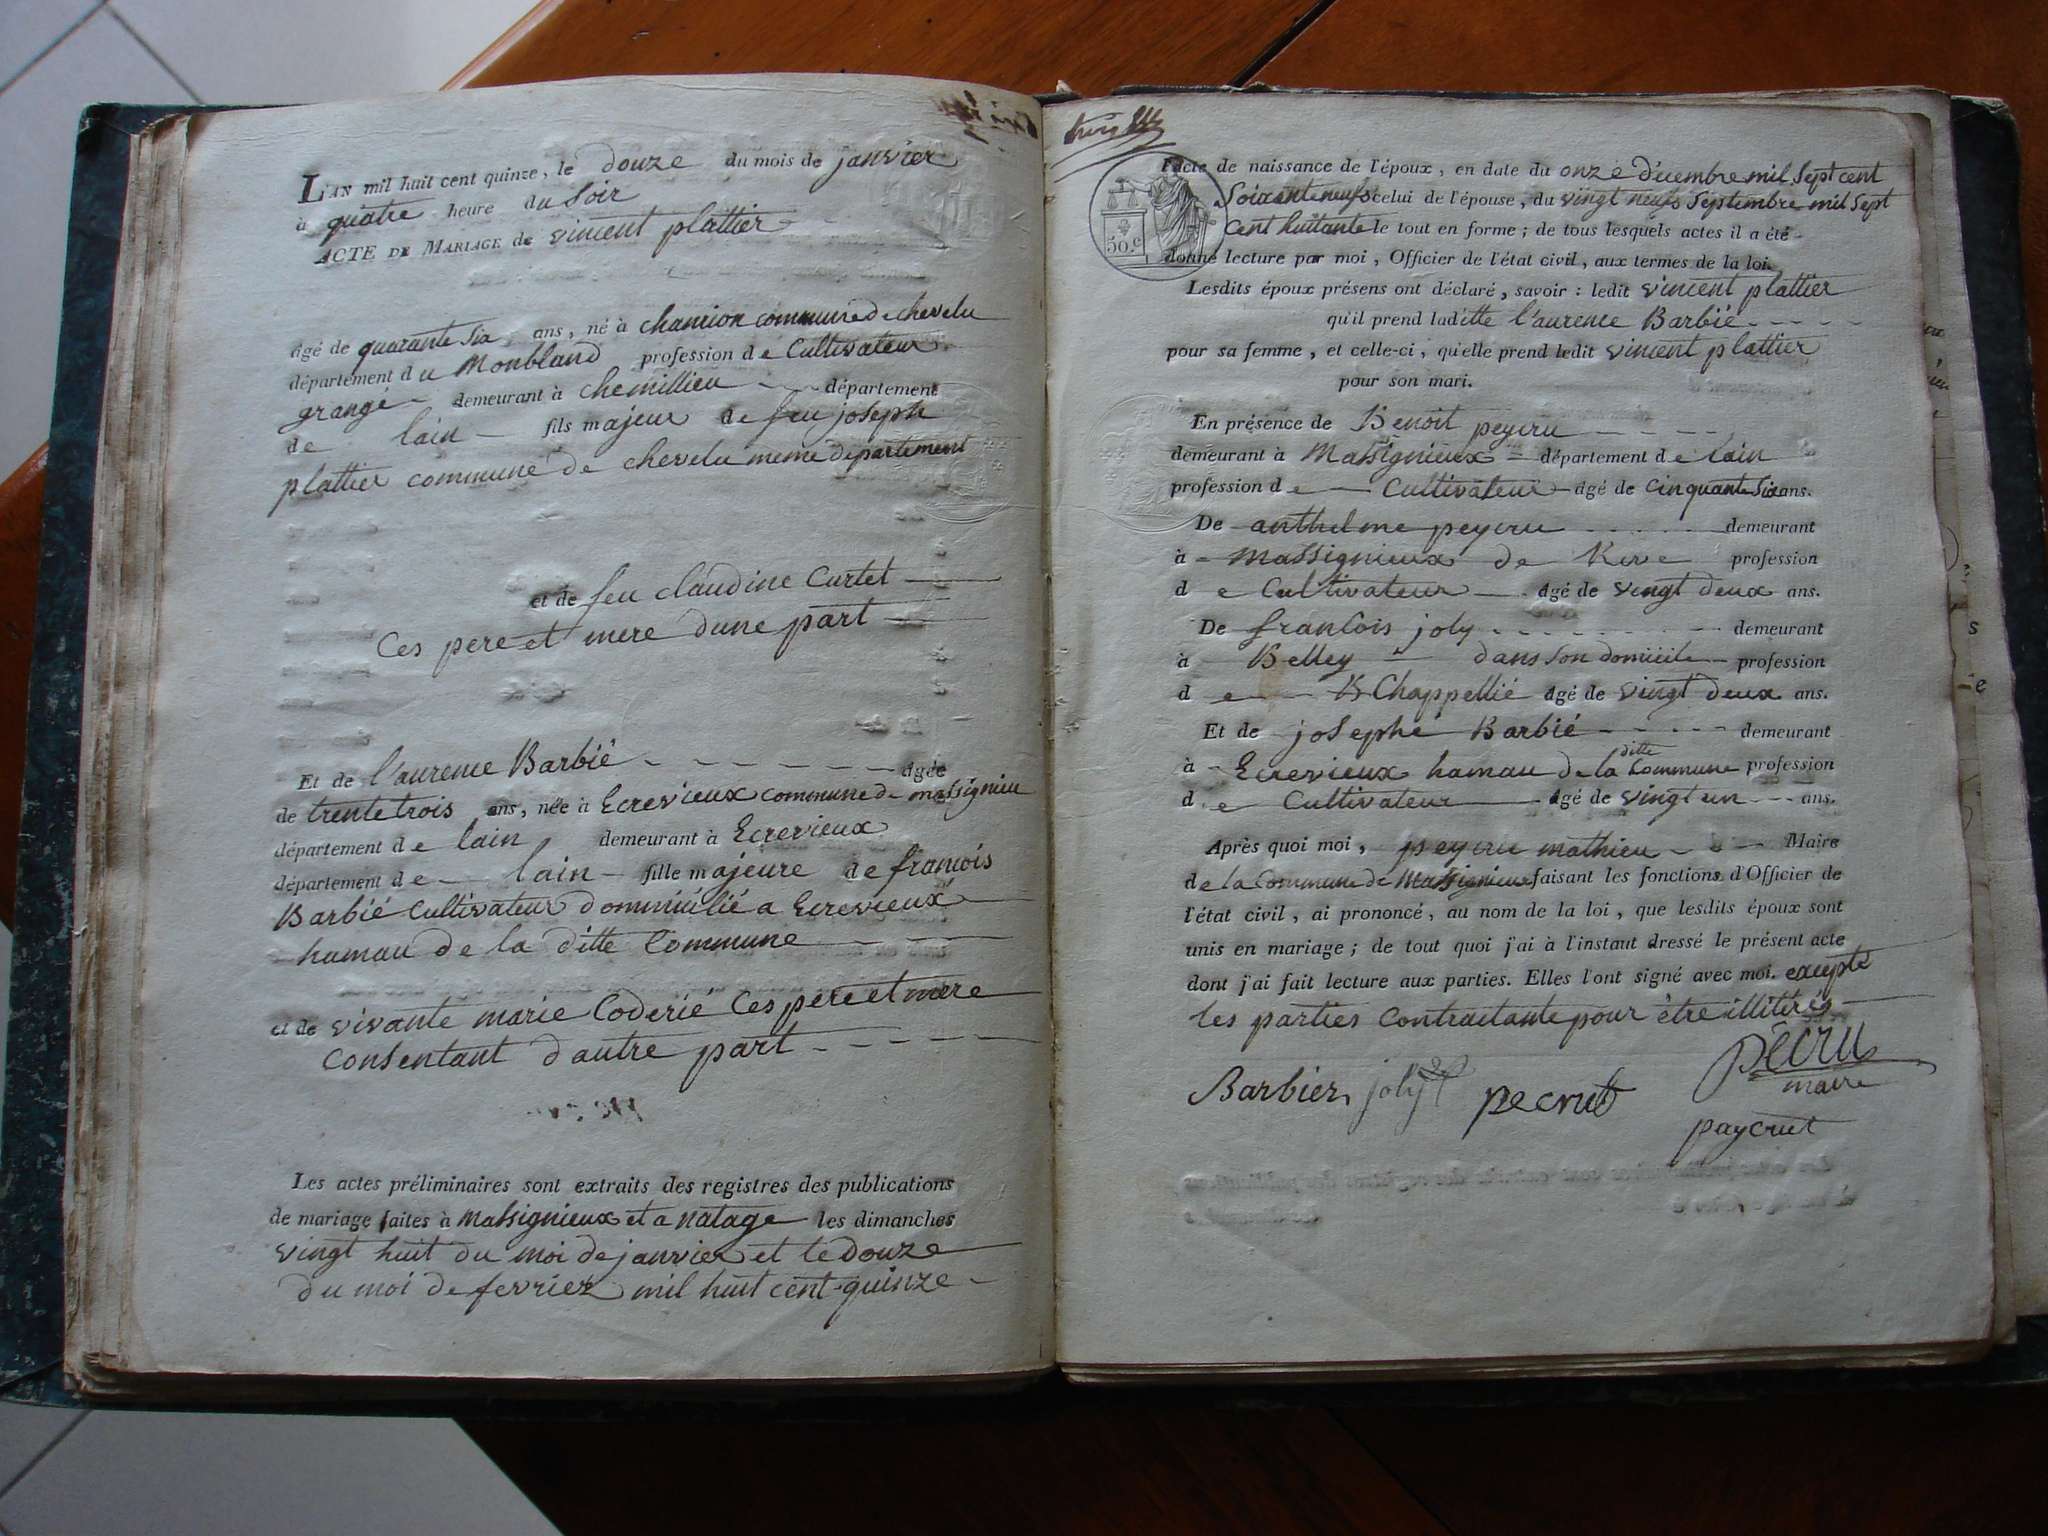 L'AN mil huit cent quinze, le douze du mois de janvier
à quatre heure du Soir
ACTE DE MARIAGE de vincent plattier
agé de quarante Six ans, né à chanrion commune de chevelu
département du Monbland profession de Cultivateur
grangé demeurant à chemillieu département
de lain fils majeur de feu joseph
plattier commune de chevelu meme departement
et de feu claudine Curtet
Ces pere et mere dune part
Et de l'aurence Barbié agée
de trente trois ans, née à Ecrevieux commune de massignieu
département de lain demeurant à Ecrevieux
département de lain fille majeure de francois
Barbié Cultivateur domicilié a Ecrevieux
hamau de la ditte Commune
et de vivante marie Coderié Ces pere et mere
Consentant d'autre part
Les actes préliminaires sont extraits des registres des publications
de mariage faites à Massignieux et a natage les dimanches
vingt huit du moi de janvier et le douze
du moi de fevrier mil huit cent quinze
l'acte de naissance de l'époux, en date du onze décembre mil Sept cent
Soixante neufs celui de l'épouse, du vingt neufs Septembre mil Sept
Cent huittante le tout en forme; de tous lesquels actes il a été
50.c
donné lecture par moi, Officier de l'état civil, aux termes de la loi.
Lesdits époux présens ont déclaré, savoir: ledit vincent plattier
qu'il prend laditte l'aurence Barbié
pour sa femme, et celle-ci, qu'elle prend ledit vincent plattier
pour son mari.
En présence de Benoit peycru
demeurant à Massignieux département de lain
profession de Cultivateur agé de Cinquante Six ans.
De anthelme peycru demeurant
à Massignieux de Rive profession
de Cultivateur agé de vingt deux ans.
De francois joly demeurant
à Belley dans son domicile profession
de Chappellié agé de vingt deux ans.
Et de josephé Barbié demeurant
à Ecrevieux hamau de la ditte Commune profession
de Cultivateur agé de vingt un ans.
Après quoi moi, peycru mathieu Maire
de la Commune de Massignieux faisant les fonctions d'Officier de
l'état civil, ai prononcé, au nom de la loi, que lesdits époux sont
unis en mariage; de tout quoi j'ai à l'instant dressé le présent acte
dont j'ai fait lecture aux parties. Elles l'ont signé avec moi. excepté
les parties Contractante pour être illitérés
Barbier joly pecrut pécru
maire
paycrut